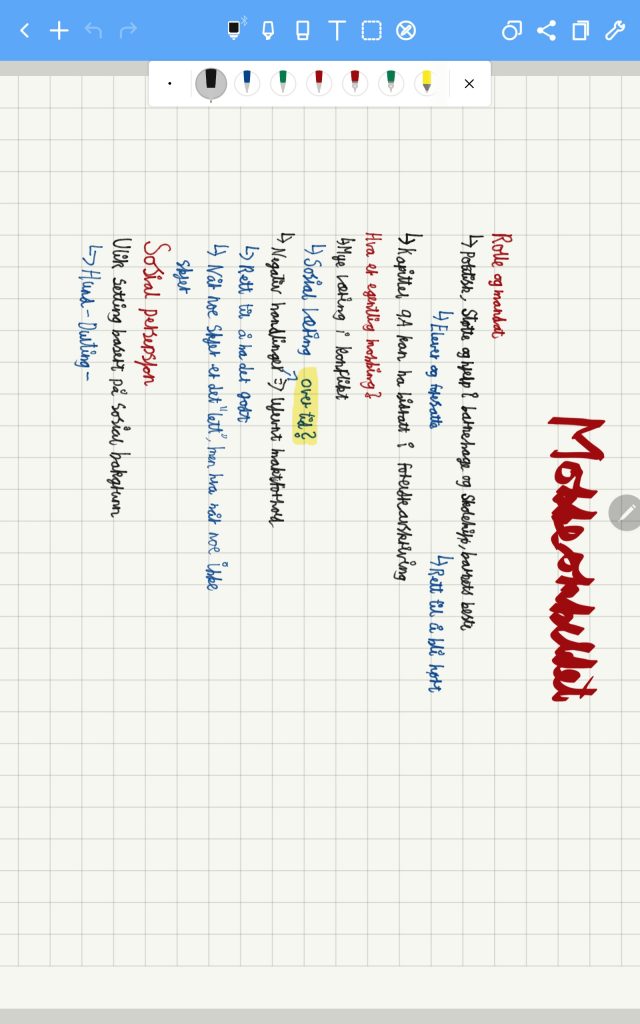 Mobbeombudet
Rolle og mandat
↳ Politisk, Støtte og hjelp i barnehage og skole, barnets beste
↳ Elever og foresatte ↳ Rett til å bli hørt
↳ Kapittel 9A kan ha bidratt i
Hva er egentlig mobbing?
↳ Mye læring i konflikt
↳ Sosial læring over tid?
↳ Negativ handlinger => Ujevnt maktforhold
↳ Rett til å ha det godt
↳ Når noe skjer er det "lett", men hva når noe ikke
skjer
Sosial persepsjon
Ulik setting basert på sosial bakgrunn
↳